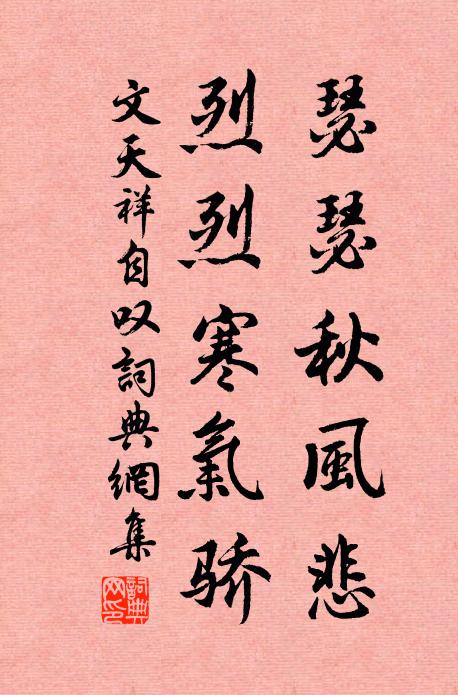 瑟瑟秋風悲
烈烈寒氣骄
文天祥自叹詞典網集
詞典網印